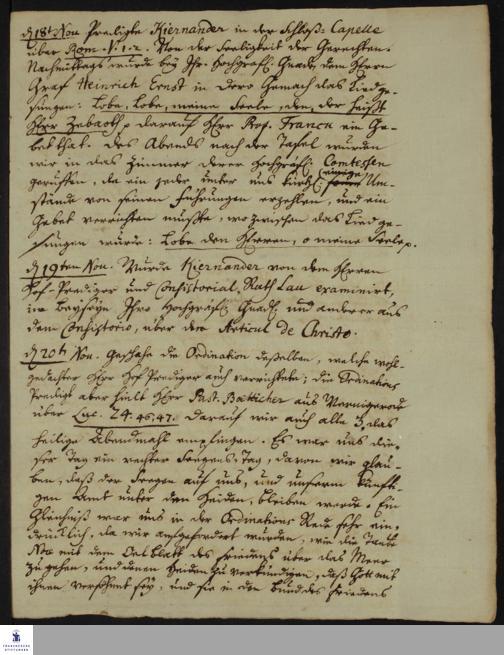 d 18t Nov. Predigte Kiernander in der Schloß-Capelle
über Rom. V. 1. 2. Von der Seeligkeit der Gerechten.
Nachmittags wurde bey Ihr. Hochgräfl. Gnad. dem Herrn
Graf Heinrich Ernst in dero Gemach das Lied ge-
sungen: Lobe, Lobe, meine Seele, den, der heißt
Herr Zebaoth, p darauf Herr Prof. Franck ein Ge-
bet that. Des Abends nach der Tafel wurden
wir in das Zimmer derer Hochgräfl. Comtessen
geruffen, da ein jeder unter uns einige Um-
stände von seinen Führungen erzehlen, und ein
Gebet verrichten mußte, wozwischen das Lied ge-
sungen wurde: Lobe den Herren, o meine Seele p.
d 19ten Nov. Wurde Kiernander von dem Herrn
Hof-Prediger und Consistorial-Rath Lau examinirt,
im beyseyn Ihro Hochgräfl. Gnad. und anderer aus
dem Consistorio, über den Articul de Christo.
d 20t Nov. geschahe die Ordination deßelben, welche wohl-
gedachter Herr Hof-Prediger auch verrichtete; die Ordinations
Predigt aber hielt Herr Past. Bötticher aus Wernigerode
über Luc. 24. 46, 47. Darauf wir auch alle 3, das
heilige Abendmahl empfingen. Es war uns die-
ser Tag ein rechter Seegens-Tag, davon wir glau-
ben, daß der Seegen auf uns, und unserm künfti-
gen Amt unter den Heiden, bleiben werde. Ein
Gleichniß war uns in der Ordinations Rede sehr ein-
drücklich, da wir aufgefordert wurden, wie die Taube
Noä mit dem Oelblatt des Friedens über das Meer
zu gehen, und denen Heiden zu verkündigen, daß Gott mit
ihnen versöhnet sey, und sie in den Bund des Friedens
FRANCKESCHE
STIFTUNGEN